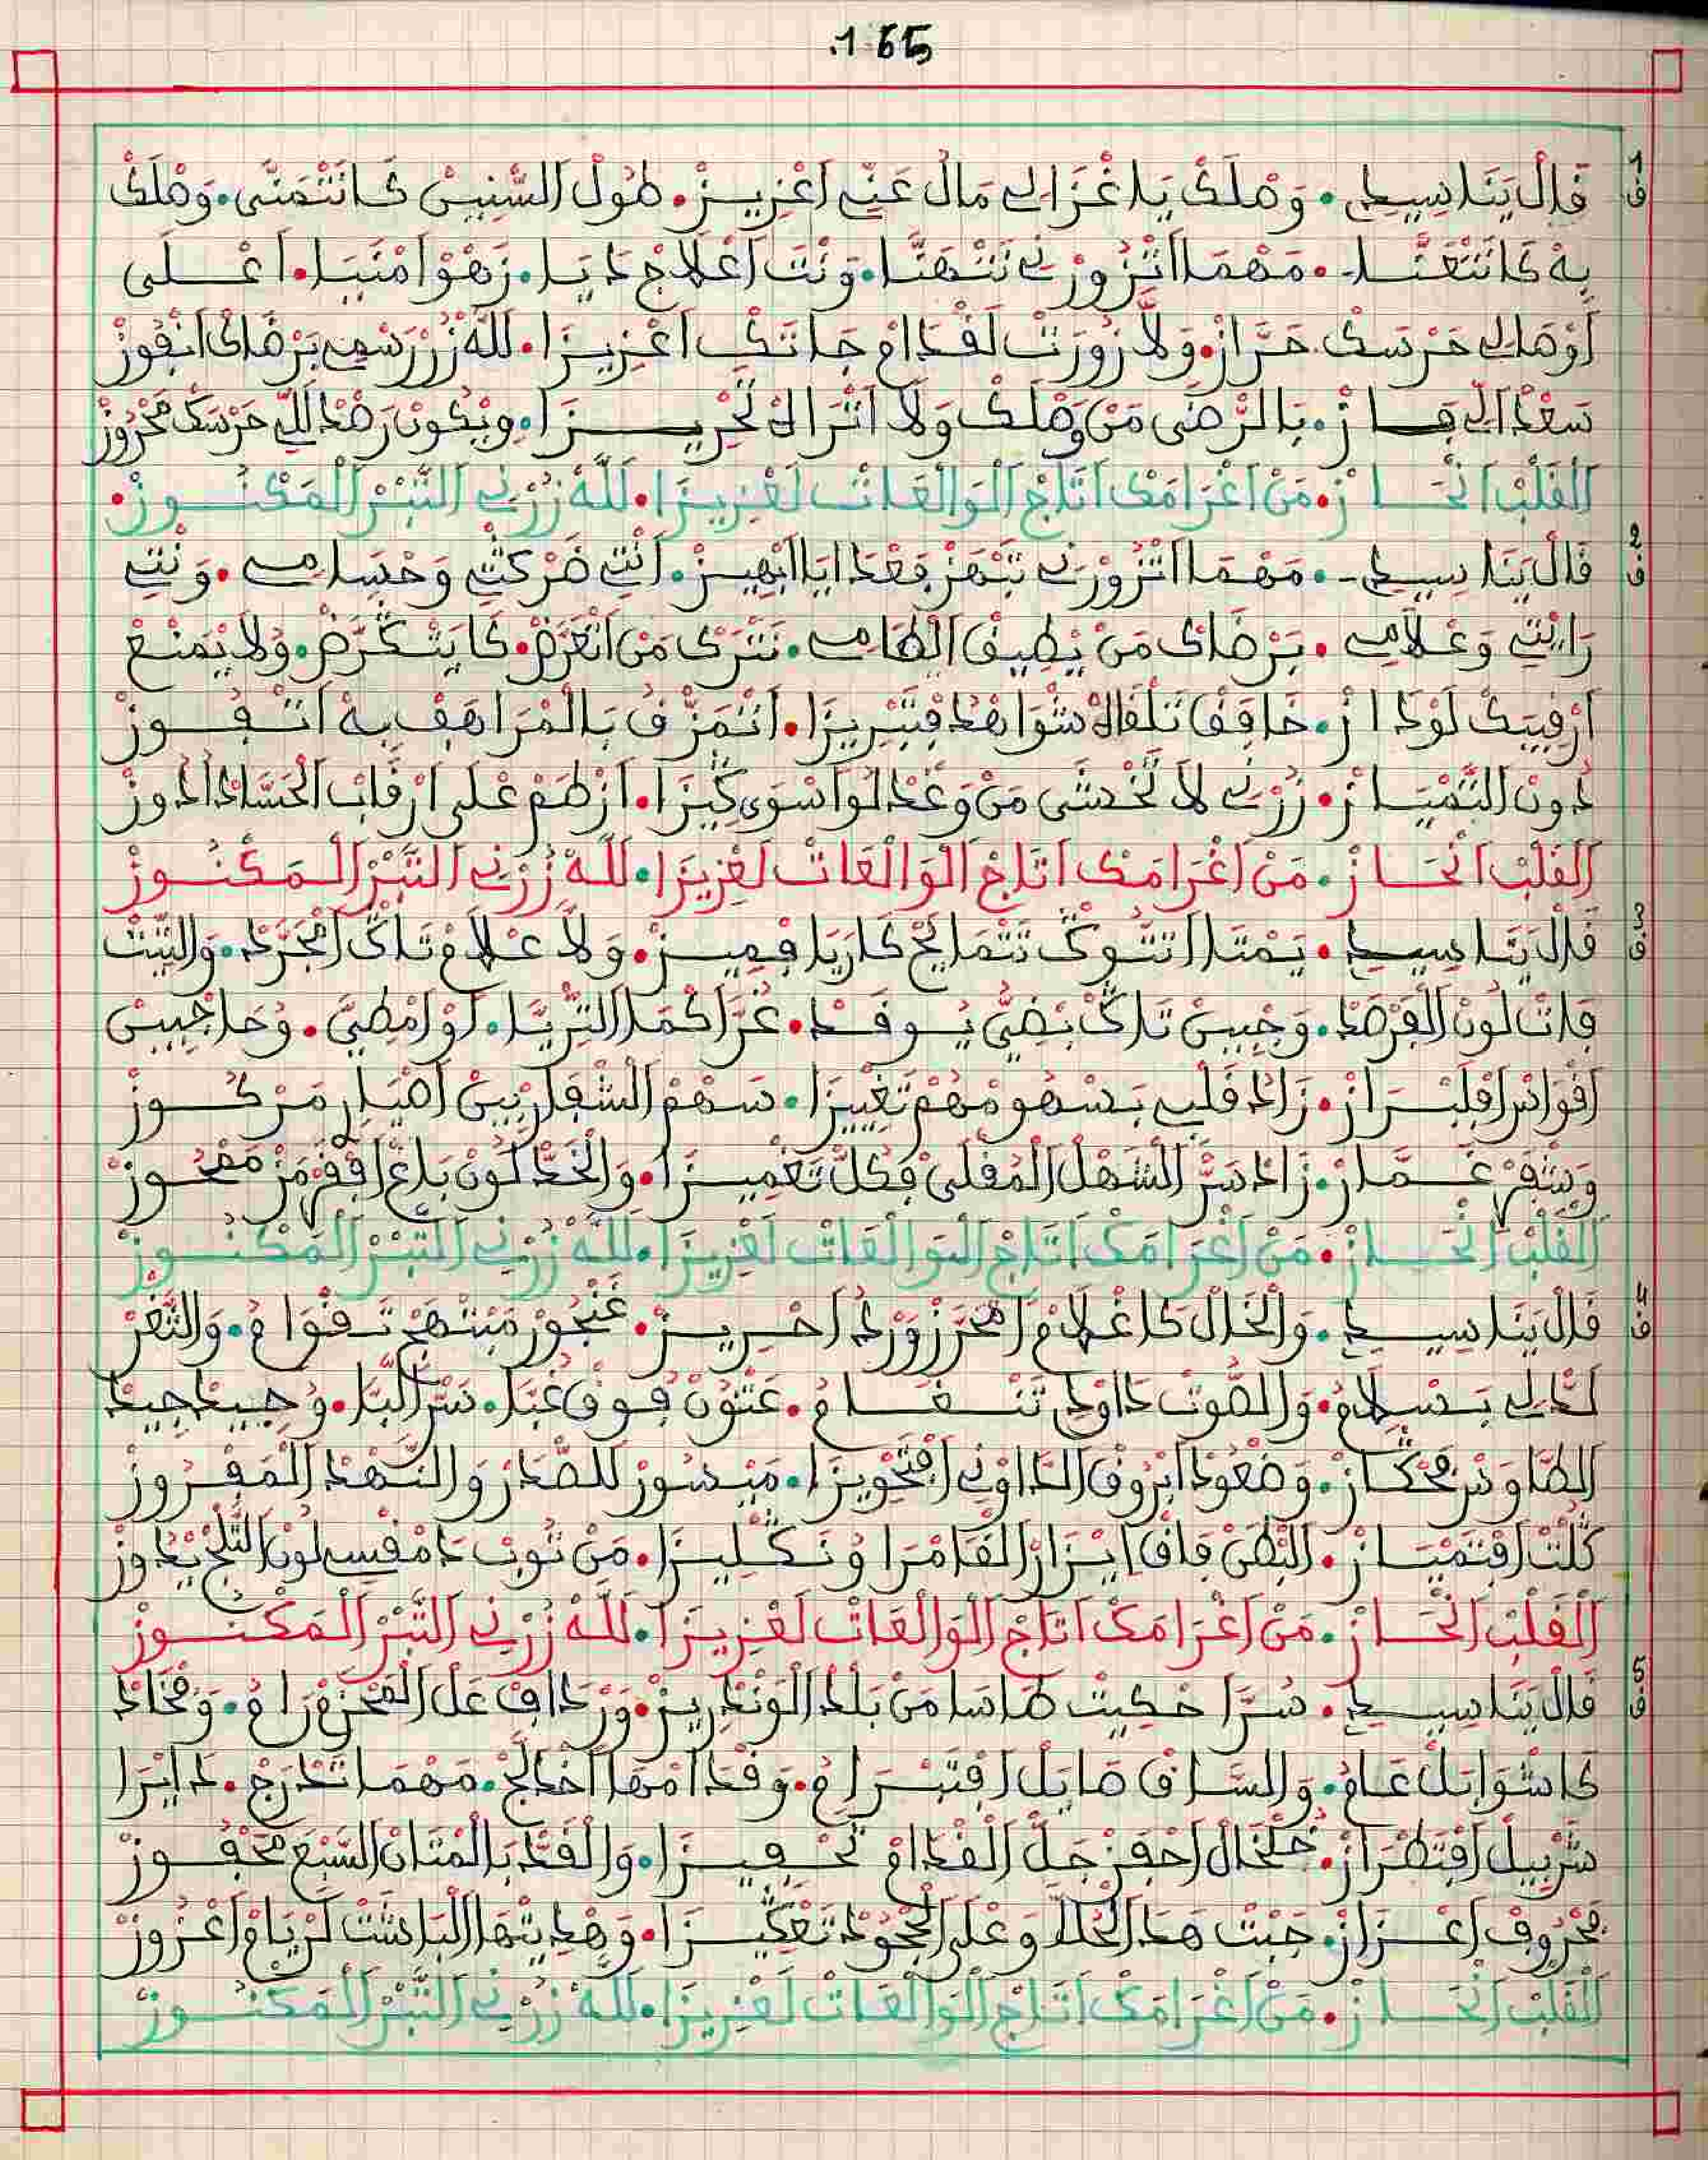 165.
ق1 قَالْ يَنَا سِيدِي • وَصْلَكْ يَا غْزَالِي مَالْ عَنِّي اعْزِيزْ • طُولْ السّْنِينْ كَانَتْمَنَّى • وَصْلَكْ
بِهْ كَانَتْغَنَّا • مَهْمَا اتْزُورْنِي نَتْهَنَّا • وَنْتَ اعْلَاجْ دَايَا • زَهْوْ امْنَيَا • اعْلَى
اوْصَالِي حَرْسَكْ حَرَّازْ • وَلَا زُورَتْ لَقْدَامْ جَاتَكْ اعْزِيزَا • للَّهْ زُرْ رَسْمِي بَرْضَاكْ انْفُوزْ
سَعْدْ الِّي فَازْ • بَالرّْضَى مَنْ وَصْلَكْ وَلَا اتْرَالَهْ تَحْرِيزَا • وِيْكُونْ رَصْدْ اللِّي حَرْسَكْ مَحْرُوزْ
الْقَلْبْ انْحَازْ • مَنْ اغْرَامَكْ اتَاجْ الْوَالْعَاتْ لَعْزِيزَا • للَّهْ زُرْنِي التّْبَرْ الْمَكْنُوزْ •
ق2 قَالْ يَنَا سِيدِي • مَهْمَا اتْزُورْنِي تَنْهَزْ بَعْدَ ايَا ابْهِيزْ • انْتِ ضَرْكْتِي وَحْسَامِي • وَنْتِ
رَايْتِي وَعْلَامِي • بَرْضَاكْ مَنْ يْطِيقْ الْطَامِي • نَتْرَكْ مَنْ اتْعَرَّضْ • كَا يَتْكَرَّضْ • وَلَا يْمَنْعْ
ارْقِيبَكْ لَوْدَازْ • خَافَقْ تَلْقَاهْ شْوَاهْدْ فْتَبْرِيزَا • انْتْمَزَّقْ بَالْمْرَاهَفْ بِهْ انْفُوزْ
دُونْ التَّمْيَازْ • زُرْنِي لَا تَخْشَى مَنْ وَغْدْ لَوْ اسْوَى كِيزَا • ازْطَمْ عْلَى ارْقَابْ الْحَسَّادْ ادُوزْ
الْقَلْبْ انْحَازْ • مَنْ اغْرَامَكْ اتَاجْ الْوَالْعَاتْ لَعْزِيزَا • للَّهْ زُرْنِي التّْبَرْ الْمَكْنُوزْ
ق3 قَالْ يَنَا سِيدِي • يَمْتَا اتْشُوكْ تَتْمَايَحْ كَارْيَا فْمِيزْ • وَلَا عْلَامْ تَاكْ امْجَرَّدْ • وَالتِّيتْ
فَاتْ لُونْ الْفَرْصَدْ • وَجْبِينْ تَاكْ بَضْيْ يُوقَدْ • غُرَّا كْمَا التّْرِيَّا • لَوْ امْضِيَّ • وُحَاجْبِينْ
اقْوَاسْ افْلَبْرَازْ • زَادْ قَلْبِي بَسْهُومْهُمْ تَغْيِيزَا • سَهْمْ الشْفَارْ بِينْ اضْيَارِ مَرْكُوزْ
وَشْفَرْ غَمَّازْ • زَادْ سَرّْ الشَّهْلْ الْمُقْلَى فْكُلّْ تَغْمِيزَا • وَالْخَدّْ لُونْ بَلاَّغْ افْقَرْمَزْ مَفْحُوزْ
الْقَلْبْ انْحَازْ • مَنْ اغْرَامَكْ اتَاجْ الْوَالْعَاتْ لَعْزِيزَا • للَّهْ زُرْنِي التّْبَرْ الْمَكْنُوزْ
ق4 قَالْ يَنَا سِيدِي • وَالْخَالْ كَا غْلَامْ امْحَرَّزْ وَرْدْ احْرِيزْ • غَنْجُورْ مَبْتْهَجْ تَقْوَامْ • وَالثَّغْرْ
لَدَّالِي بَسْلَامُ • وَالصُّوتْ دَاوْدِي تَنْغَامُ • عَنْقُونْ فُوقْ غَبَا • سَرّْ الْبَا • وُجِيدْ جِيدْ
الطَّاوَسْ فْحْكَازْ • وَضْعُودْ ابْرُوقْ الدَّاوْنِي افْتَحْوِيزَا • مَيْسُورْ للصّْدَرْ وَالنَّهْدْ الْمَفْرُوزْ
كُلْتْ افْتَمْيَازْ • الْبْطَنْ فَاقْ ايْزَارْ الْقَامْرَا وُنَكْلِيزَا • مَنْ تُوبْ دَامَقْسِي لُونْ التَّلْجْ يْدُوزْ
الْقَلْبْ انْحَازْ • مَنْ اغْرَامَكْ اتَاجْ الْوَالْعَاتْ لَعْزِيزَا • للَّهْ زُرْنِي التّْبَرْ الْمَكْنُوزْ
ق5 قَالْ يَنَا سِيدِي • سُرَّا حْكِيتْ طَاسَا مَنْ بَلْدْ الْوَنْدْرِيزْ • وَرْدَافْ عَلْ الْمَحْزَمْ رَامُ • وَفْخَادْ
كَا شْوَابَلْ عَامُ • وَالسَّاقْ صَايَلْ افْتَبْرَامُ • وَقْدَامْهَا اخْدَالَّجْ • مَهْمَا تَدْرَجْ • دَايْرَا
شَرْبِيلْ افْتَطْرَازْ • خَلْخَالْ احْفَزْ جَلّْ الْقْدَامْ تَحْفِيزَا • وَالْقَدّْ بَالْمْتَانْ السَّبْعْ مَحْفُوزْ
مَحْرُوفْ اعْزَازْ • جَبْتْ هَدْ الْحُلَّا وَعْلَى الْجْحُودْ تَعْكِيزَا • وَهْدِيتْهَا الْبَاشَتْ لَرْيَامْ اعْرُوزْ
الْقَلْبْ انْحَازْ • مَنْ اغْرَامَكْ اتَاجْ الْوَالْعَاتْ لَعْزِيزَا • للَّهْ زُرْنِي التّْبَرْ الْمَكْنُوزْ